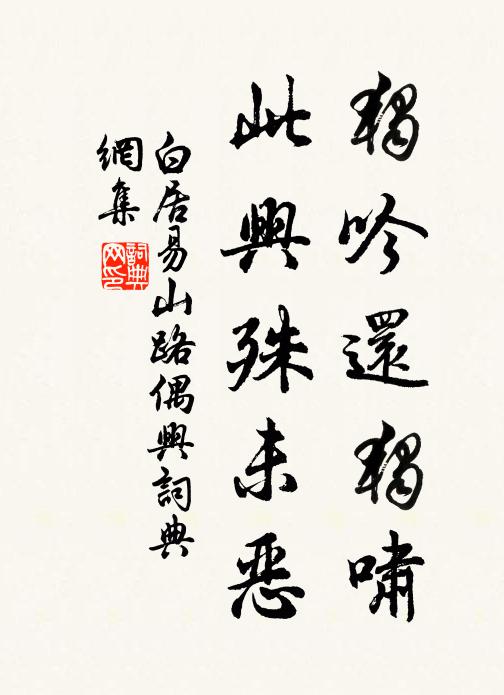 獨吟還獨嘯
此興殊未惡
白居易山路偶興詞典
網集
詞典
网印